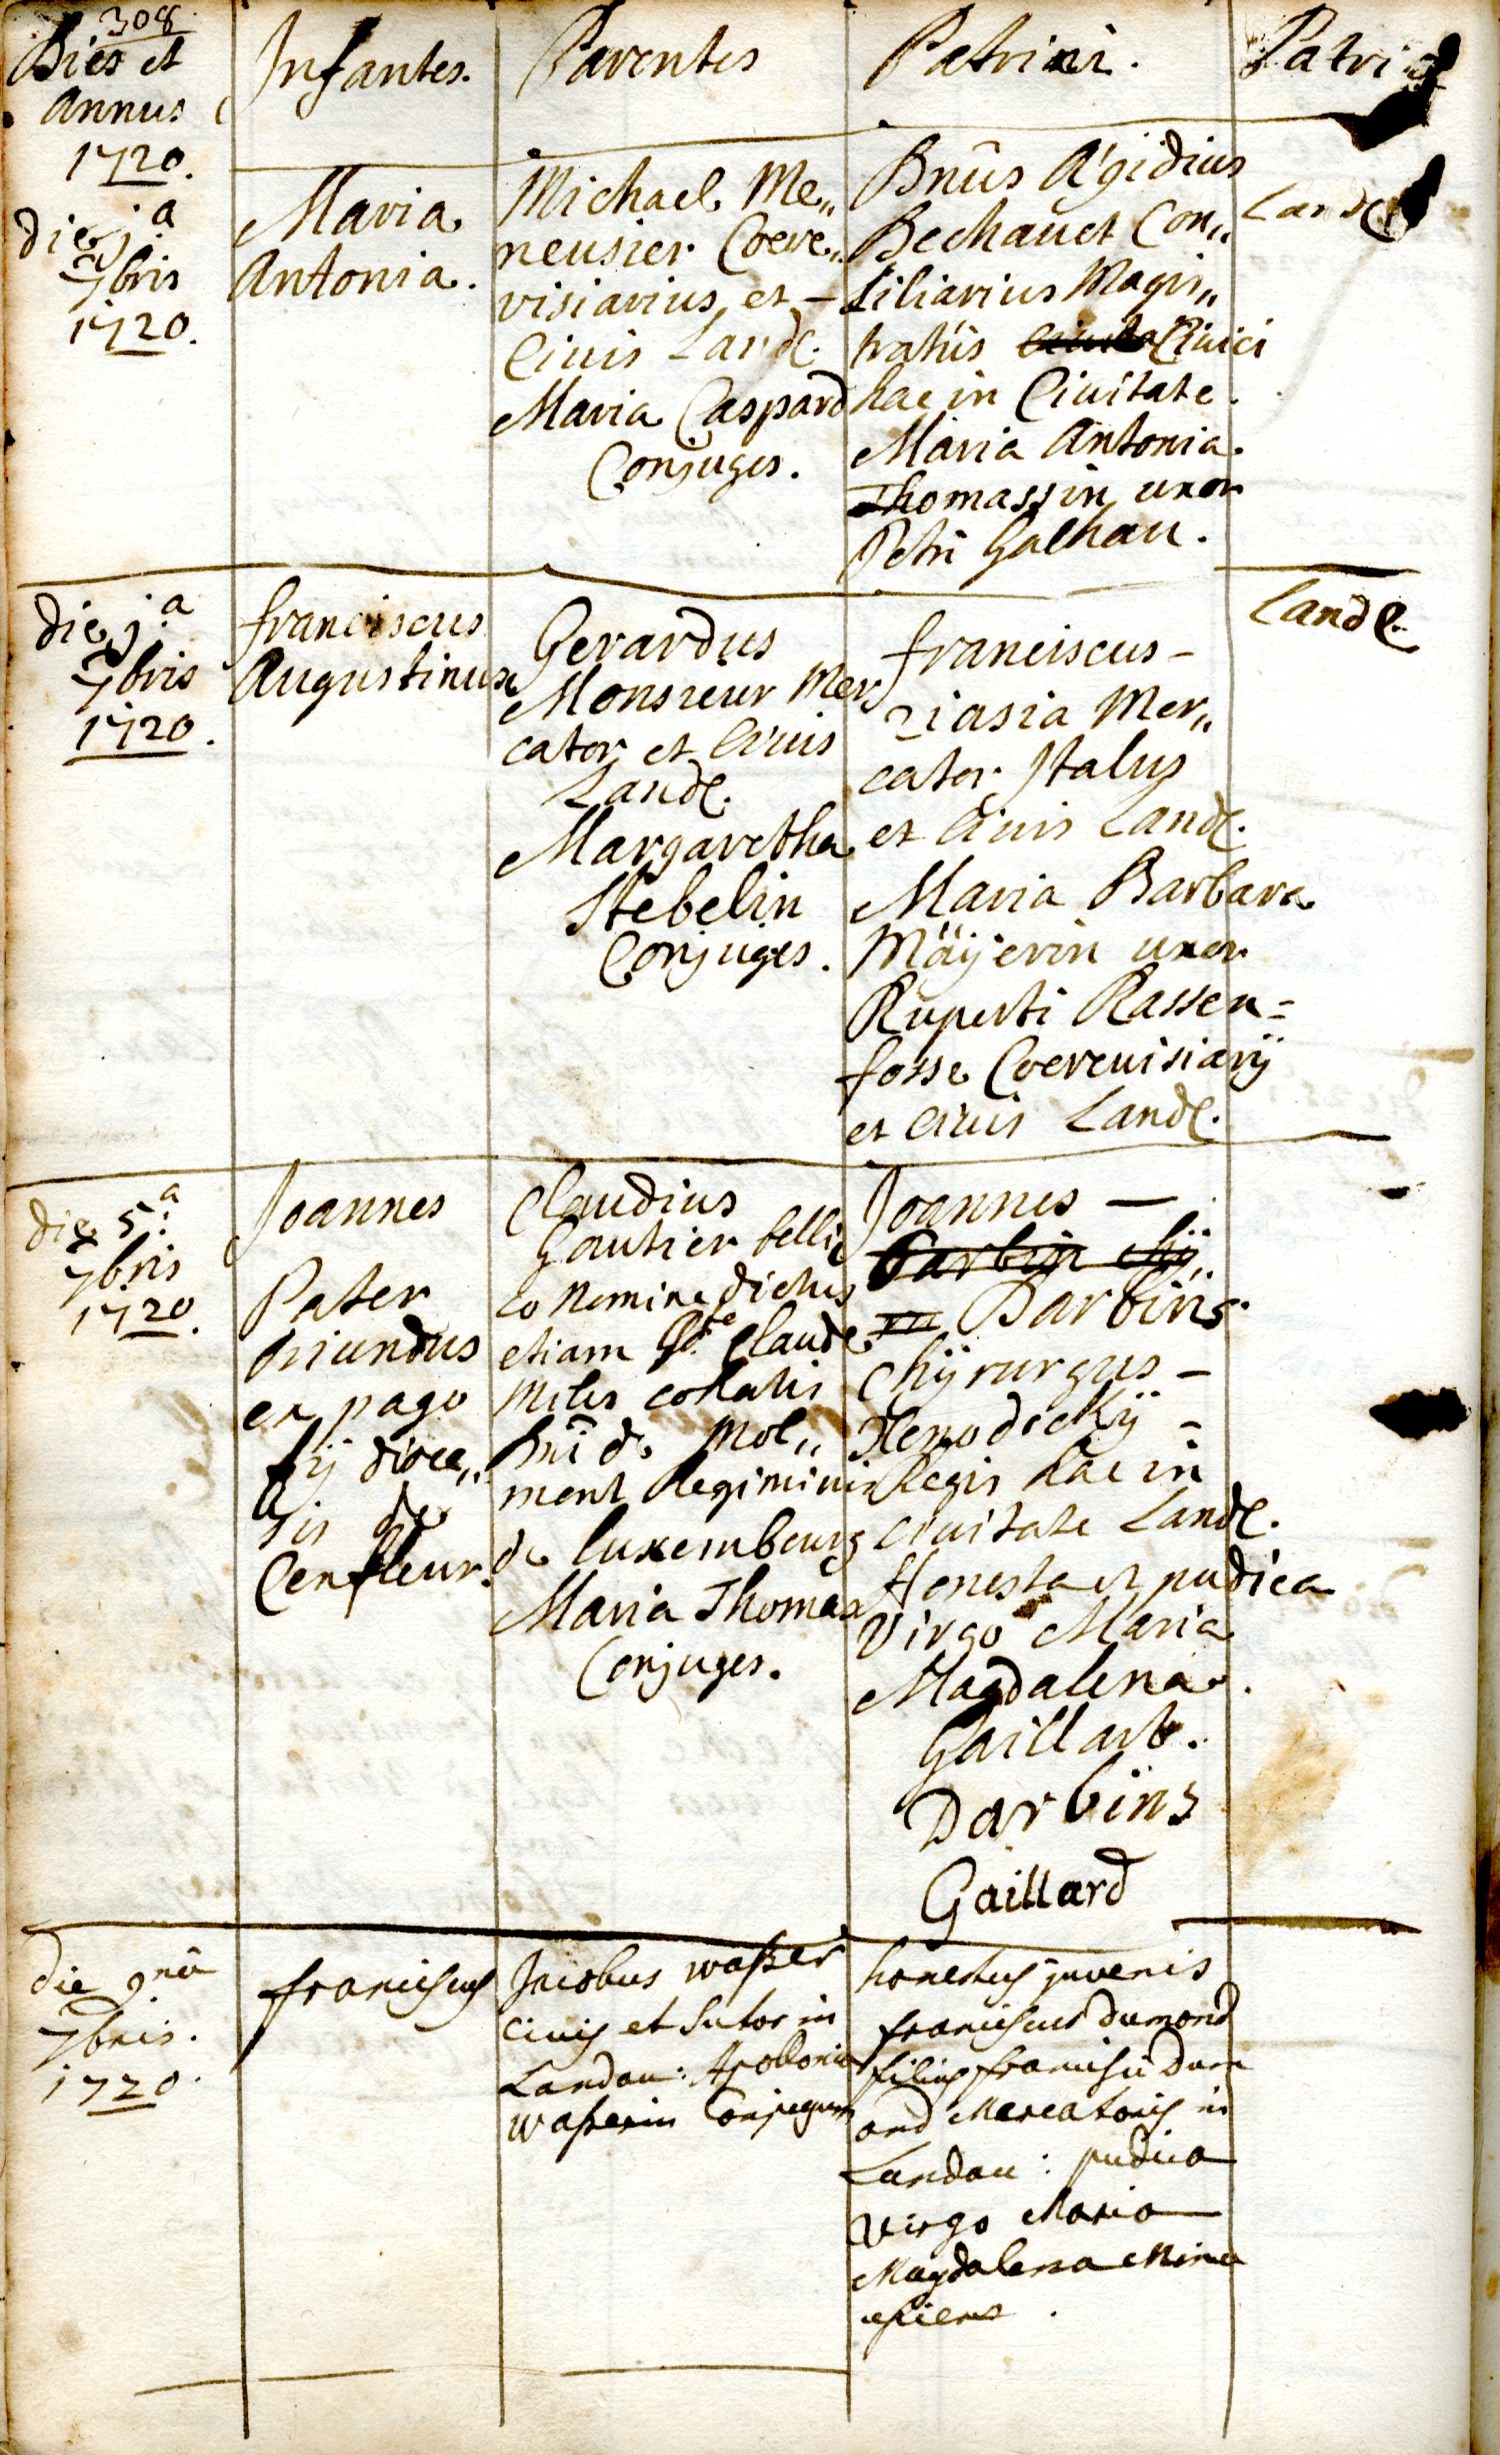 308
Dies et
Annus
1720.
Infantes.
Parentes
Patrini.
Patri
die j.a
7bris
1720.
Maria
Antonia.
Michael Me„
neusier Coere„
visiarius et –
Civis Land.
Maria Caspard
Conjuges.
Dnûs Ægidius
Bechauet Con„
siliarius Magis„
tratûs Civici
hac in Civitate.
Maria Antonia
Thomassin uxor
Petri Galhau.
Land
die j.a
7bris
1720.
franciscus
Augustinus
Gerardus
Monsieur Mer
cator et Civis
Land.
Margaretha
Stebelin
Conjuges.
franciscus –
ziasia Mer„
cator Italus
et Civis Land.
Maria Barbara
Mäÿerin uxor
Ruperti Rassen=
fosse Coerevisiarÿ
et Civis Land.
Land.
die 5.a
7bris
1720.
Joannes
Pater
oriundus
ex pago
fÿ dioce„
sis de
Confleur.
Claudius
Gautier belli
co Nomine dictus
etiam St. Claude
Miles cohortis
Dni de Mol„
ment Regiminis
de Luxembourg
Maria Thomas
Conjuges.
Joannes –
Darbin chÿ
Darbins
Chÿrurgus –
Xenodochÿ –
Regis hac in
Civitate Land.
Honesta et pudica
Virgo Maria
Magdalena
Gaillart.
Darbins
Gaillard
die 9nâ
7bris.
1720.
franciscus
Jacobus waßer
civis et Sutor in
Landau: Apollonia
waßerin Conjugum
honestus juvenis
franciscus dumond
filius francisci dum
ond Mercatoris in
Landau: pudica
Virgo Maria
Magdalena